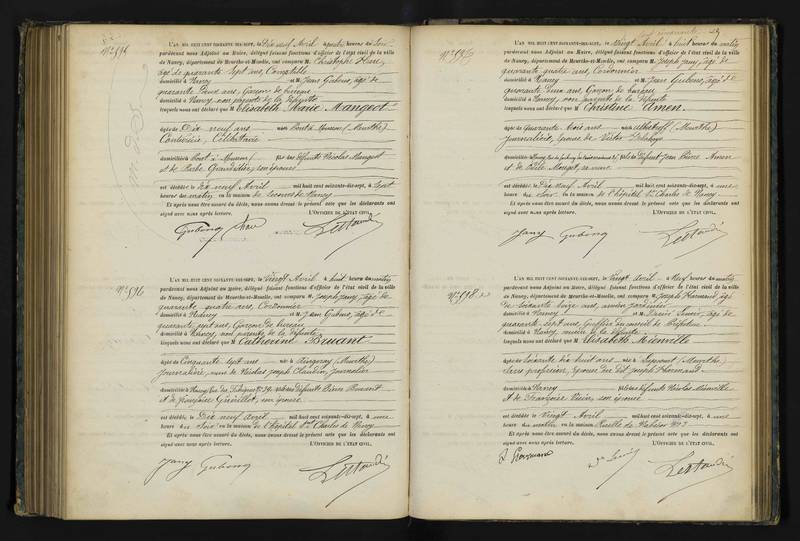 N° 595
L'AN MIL HUIT CENT SOIXANTE-DIX-SEPT, le Dix neuf Avril à quatre heures du Soir
pardevant nous Adjoint au Maire, délégué faisant fonctions d'officier de l'état civil de la ville
de Nancy, département de Meurthe-et-Moselle, ont comparu M. Christophe
âgé de quarante sept ans,
domicilié à Nancy et M. Jean Gubong, âgé de
quarante deux ans, Garçon de bureau
domicilié à Nancy, non parents de la défunte
lesquels nous ont déclaré que M Elisabeth Marie Mangeot
âgée de Dix neuf ans née à Pont à Mousson (Meurthe)
Couturière, Célibataire
domiciliée à Pont à Mousson fille des défunts Nicolas Mangeot
et de Barbe son épouse
est décédée le Dix neuf Avril mil huit cent soixante-dix-sept, à Sept
heures du matin en la maison de Secours de Nancy
Et après nous être assuré du décès, nous avons dressé le présent acte que les déclarants ont
signé avec nous après lecture. L'OFFICIER DE L'ÉTAT CIVIL,
Gubong
N° 596
L'AN MIL HUIT CENT SOIXANTE-DIX-SEPT, le Vingt Avril à huit heures du matin
pardevant nous Adjoint au Maire, délégué faisant fonctions d'officier de l'état civil de la ville
de Nancy, département de Meurthe-et-Moselle, ont comparu M. Joseph Jany, âgé de
quarante quatre ans, Cordonnier
domicilié à Nancy et M. Jean Gubong, âgé de
quarante ans, Garçon de bureau
domicilié à Nancy, non parents de la défunte
lesquels nous ont déclaré que M Catherine Bruant
âgée de Cinquante sept ans née à (Meurthe)
Journalière, veuve de Nicolas Joseph Claudin, Journalier
domiciliée à Nancy, N° 29, fille des défunts Pierre Bruant
et de Françoise son épouse
est décédée le Dix neuf avril mil huit cent soixante-dix-sept, à une
heure du Soir en la maison de l'hôpital St Charles de Nancy
Et après nous être assuré du décès, nous avons dressé le présent acte que les déclarants ont
signé avec nous après lecture. L'OFFICIER DE L'ÉTAT CIVIL,
Jany Gubong
L'AN MIL HUIT CENT SOIXANTE-DIX-SEPT, le Vingt Avril à huit heures du matin
pardevant nous Adjoint au Maire, délégué faisant fonctions d'officier de l'état civil de la ville
de Nancy, département de Meurthe-et-Moselle, ont comparu M. Joseph Jany, âgé de
quarante quatre ans, Cordonnier
domicilié à Nancy et M. Jean Gubong, âgé de
quarante deux ans, Garçon de bureau
domicilié à Nancy, non parents de la défunte
lesquels nous ont déclaré que M Christine Amen
âgée de Quarante trois ans née à (Meurthe)
Journalière, épouse de Victor
domiciliée à Nancy fille de défunt Jean Pierre Amen
et de Mouget, sa veuve
est décédée le Dix neuf Avril mil huit cent soixante-dix-sept, à une
heure du Soir en la maison de l'hôpital St Charles de Nancy
Et après nous être assuré du décès, nous avons dressé le présent acte que les déclarants ont
signé avec nous après lecture. L'OFFICIER DE L'ÉTAT CIVIL,
Jany Gubong
N° 598
L'AN MIL HUIT CENT SOIXANTE-DIX-SEPT, le Vingt Avril à Neuf heures du matin
pardevant nous Adjoint au Maire, délégué faisant fonctions d'officier de l'état civil de la ville
de Nancy, département de Meurthe-et-Moselle, ont comparu M. Joseph Harmand âgé
de soixante ans, ancien jardinier
domicilié à Nancy et M. âgé de
quarante sept ans, Greffier au conseil de Préfecture
domicilié à Nancy, de la défunte
lesquels nous ont déclaré que M Elisabeth Mienville
âgée de soixante dix huit ans née à (Meurthe)
Sans profession, épouse du dit Joseph Harmand
domiciliée à Nancy fille des défunts Nicolas Mienville
et de Françoise son épouse
est décédée le Vingt Avril mil huit cent soixante-dix-sept, à une
heure du matin en la maison Ruelle de N° 3
Et après nous être assuré du décès, nous avons dressé le présent acte que les déclarants ont
signé avec nous après lecture. L'OFFICIER DE L'ÉTAT CIVIL,